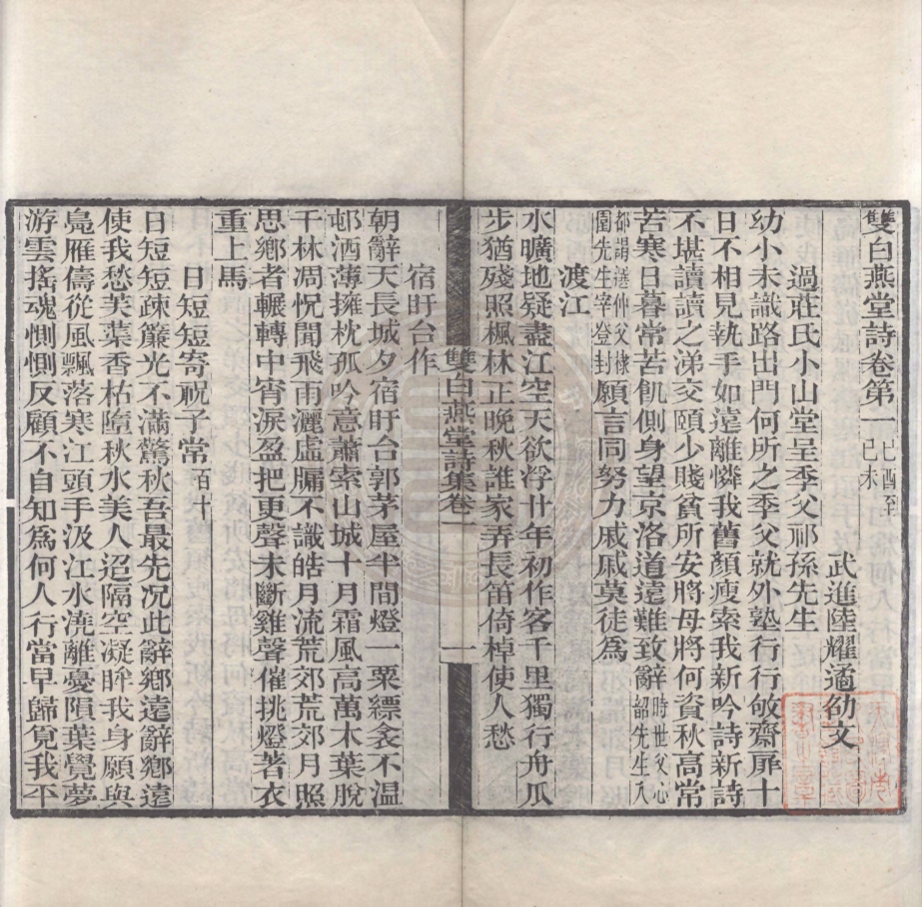 雙白燕堂詩卷第一 己酉至己未
武進陸耀遹劭文
過莊氏小山堂呈季父祁孫先生
幼小未識路出門何所之季父就外塾行行敂齋扉十
日不相見執手如遠離憐我舊顏瘦索我新吟詩新詩
不堪讀讀之涕交頤少賤貧所安將母將何資秋高常
苦寒日暮常苦飢側身望京洛道遠難致辭 時世父心韶先生入
都謁選仲父棣圃先生宰登封 願言同努力戚戚莫徒爲
渡江
水曠地疑盡江空天欲浮廿年初作客千里獨行舟瓜
步猶殘照楓林正晚秋誰家弄長笛倚棹使人愁
雙白燕堂詩集卷一 一
宿盱台作
朝辭天長城夕宿盱台郭茅屋半間燈一粟縹衾不温
邨酒薄擁枕孤吟意蕭索山城十月霜風高萬木葉脫
千林凋怳聞飛雨灑虛牖不識皓月流荒郊荒郊月照
思鄉者輾轉中宵淚盈把更聲未斷雞聲催挑燈著衣
重上馬
日短短寄祝子常 百十
日短短疎簾光不滿驚秋吾最先况此辭鄉遠辭鄉遠
使我愁芙葉香枯墮秋水美人迢隔空凝眸我身願與
鳧雁儔從風飄落寒江頭手汲江水澆離憂隕葉覺夢
游雲搖魂惻惻反顧不自知爲何人行當早歸覓我平